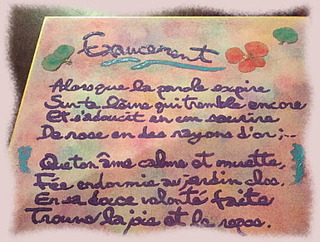 Exaucement
Alors que la parole expire
Sur ta qui tremble encore
Et s'adoucit en un sourire
De rose en des rayons d'or;--
Que ton âme calme et muette,
Fée endormie au jardin clos.
En sa douce volonté faite
Trouve la joie et le repos.